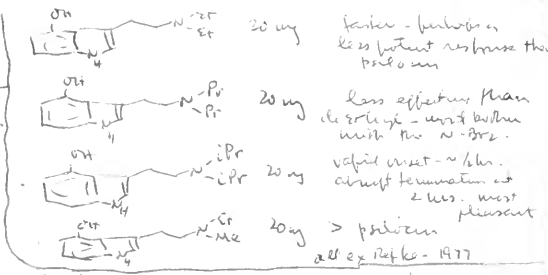 OH
N
Et
Et
N
H
20 mg
faster - perhaps a
less potent response than
psilocin
OH
N
Pr
Pr
N
H
20 mg
less effective than
diethyl - won't bother
with the N-Bu2.
OH
N
iPr
iPr
N
H
20 mg
rapid onset ~ 1/2 hr.
abrupt termination at
2 hrs. most
pleasant
OH
N
Et
Me
N
H
20 mg
> psilocin
all ex Repke - 1977